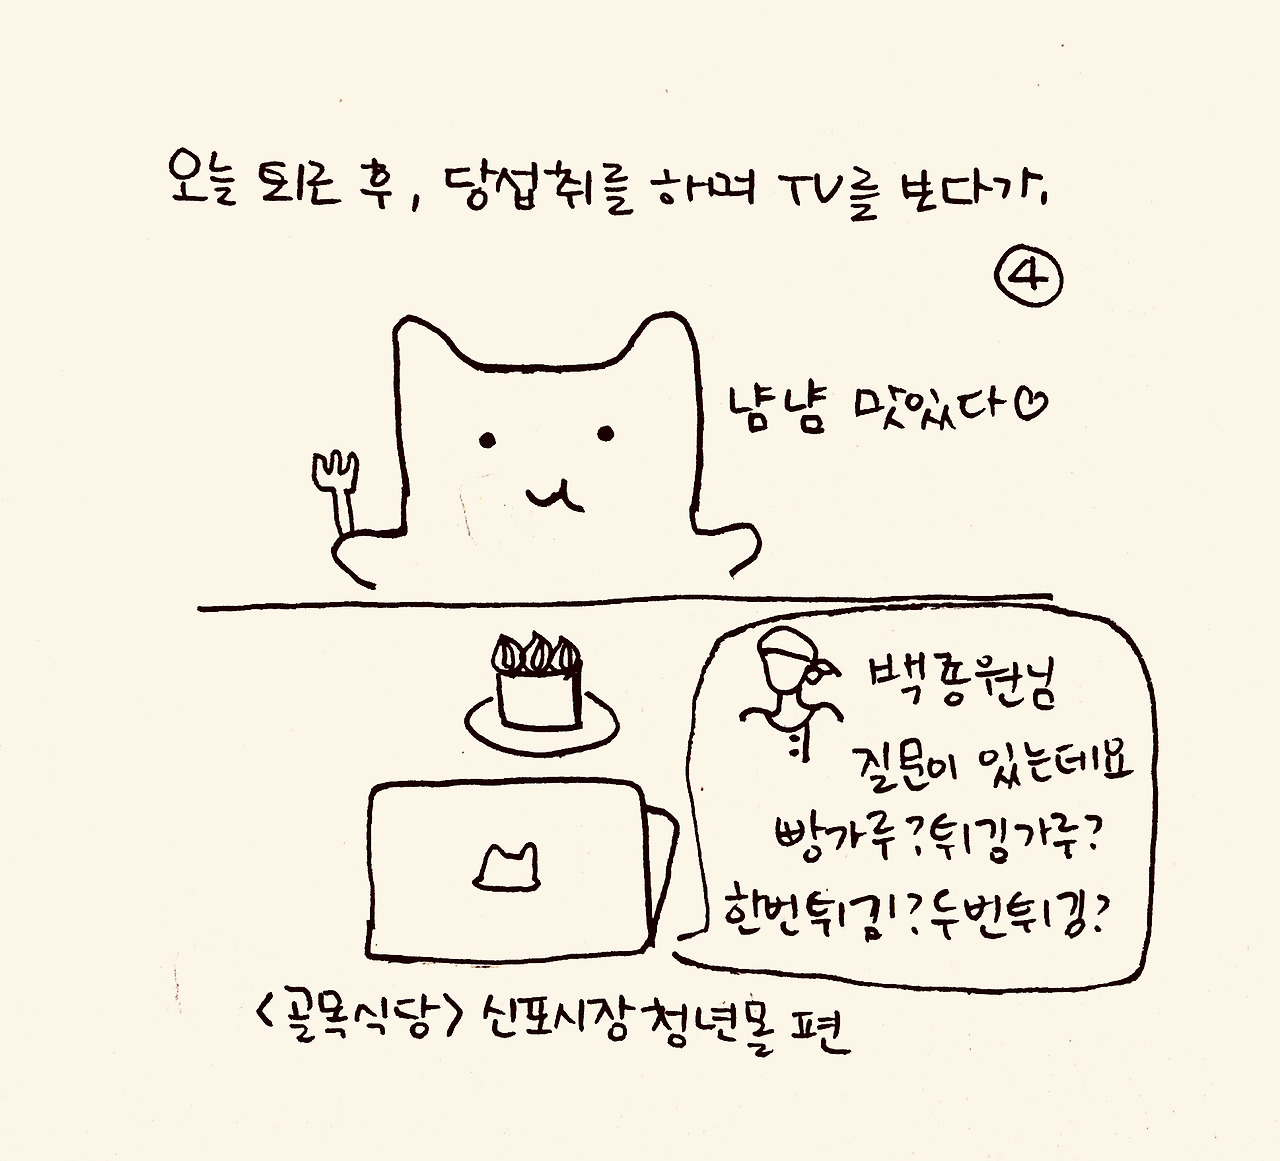 오늘 퇴근 후, 당섭취를 하며 TV를 보다가.
④
냠냠 맛있다♡
백종원님
질문이 있는데요
빵가루?튀김가루?
한번튀김?두번튀김?
<골목식당> 신포시장청년몰 편